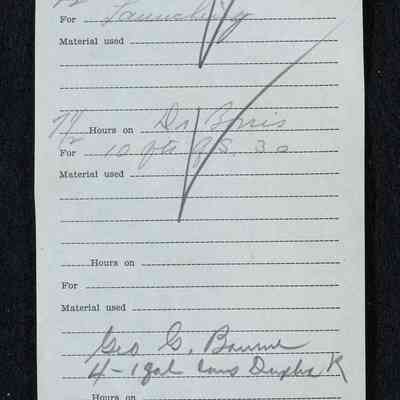 For Launching
Material used
7/2 Hours on Dr Borris
For 10 qts
Material used
Hours on
For
Material used
Geo G. Bourne
4-1 gal cans Duplex
Hours on